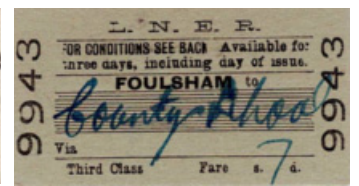 L. N. E. R.
FOR CONDITIONS SEE BACK Available for
three days, including day of issue.
FOULSHAM to
County School
Via
Third Class Fare s. 7 d.
9943
9943